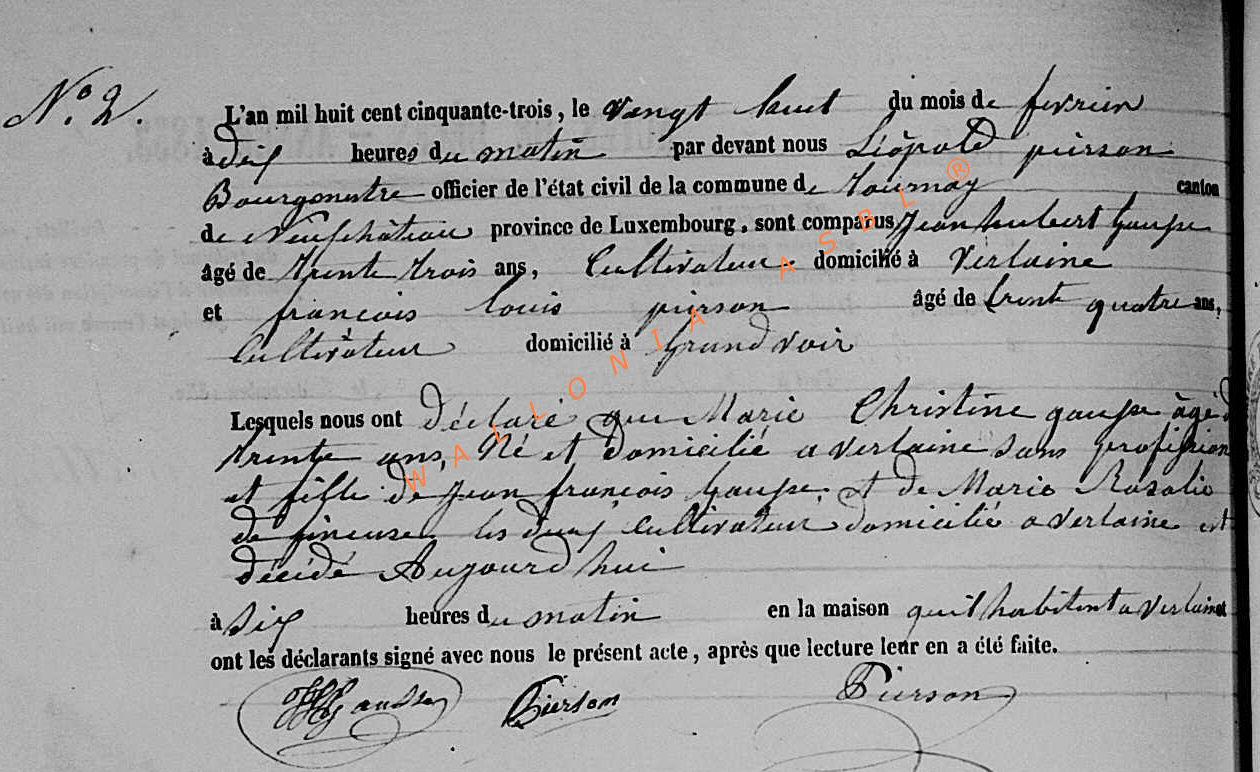 N.o 2.
L'an mil huit cent cinquante-trois, le vengt huit du mois de fevrier
à dix heures du matin par devant nous Léopold pierson
Bourgmestre officier de l'état civil de la commune de Tournay canton
de Neufchateau province de Luxembourg, sont comparus Jean hubert Gausse
âgé de trente trois ans, Cultivateur domicilié à Verlaine
et francois louis pierson âgé de trente quatre ans,
Cultivateur domicilié à Grandvoir
Lesquels nous ont déclaré que Marie Christine gausse âgé d
trente ans, Né et domicilié a verlaine sans profession
et fille de Jean francois Gausse, et de Marie Rosalie
de fineuse, les deux Cultivateur domicilié a verlaine est
décidé Aujourd'hui
à six heures du matin en la maison qu'il habitent a verlaine
ont les déclarants signé avec nous le présent acte, après que lecture leur en a été faite.
Gausse Pierson Pierson
WALLONIA ASBL ®